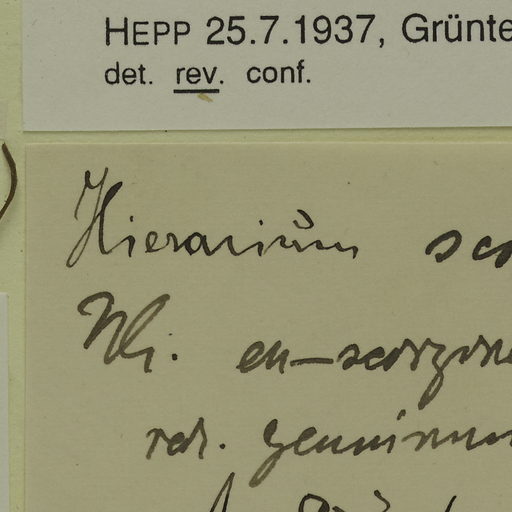 HEPP 25.7.1937, Grünte
det. rev. conf.
Hieracium sco
eu-scorzone
genuinum